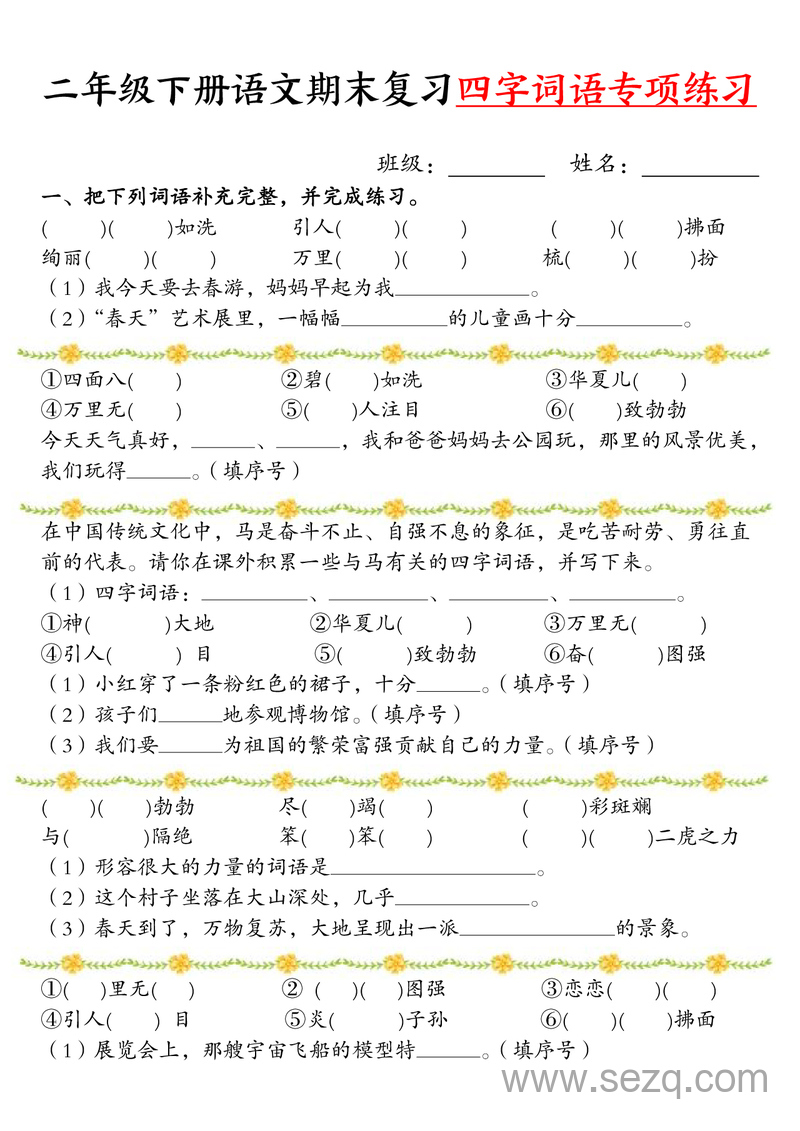 二年级下册语文期末复习四字词语专项练习
班级：________ 姓名：________
一、把下列词语补充完整，并完成练习。
(  )(  )如洗 引人(  )(  ) (  )(  )拂面
绚丽(  )(  ) 万里(  )(  ) 梳(  )(  )扮
（1）我今天要去春游，妈妈早起为我________。
（2）“春天”艺术展里，一幅幅________的儿童画十分________。
①四面八(  ) ②碧(  )如洗 ③华夏儿(  )
④万里无(  ) ⑤(  )人注目 ⑥(  )致勃勃
今天天气真好，______、______，我和爸爸妈妈去公园玩，那里的风景优美，
我们玩得______。（填序号）
在中国传统文化中，马是奋斗不止、自强不息的象征，是吃苦耐劳、勇往直
前的代表。请你在课外积累一些与马有关的四字词语，并写下来。
（1）四字词语：________、________、________、________。
①神(  )大地 ②华夏儿(  ) ③万里无(  )
④引人(  )目 ⑤(  )致勃勃 ⑥奋(  )图强
（1）小红穿了一条粉红色的裙子，十分______。（填序号）
（2）孩子们______地参观博物馆。（填序号）
（3）我们要______为祖国的繁荣富强贡献自己的力量。（填序号）
(  )(  )勃勃 尽(  )竭(  ) (  )彩斑斓
与(  )隔绝 笨(  )笨(  ) (  )(  )二虎之力
（1）形容很大的力量的词语是________。
（2）这个村子坐落在大山深处，几乎________。
（3）春天到了，万物复苏，大地呈现出一派________的景象。
①(  )里无(  ) ②(  )(  )图强 ③恋恋(  )(  )
④引人(  )目 ⑤炎(  )子孙 ⑥(  )(  )拂面
（1）展览会上，那艘宇宙飞船的模型特______。（填序号）
www.sezq.com